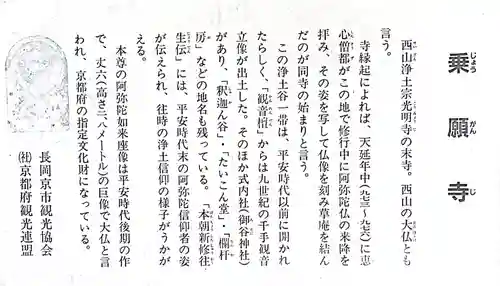 乗願寺
西山浄土宗光明寺の末寺。西山の大仏とも
言う。
寺縁起によれば、天延年中(九七三~九七六)に恵
心僧都がこの地で修行中に阿弥陀仏の来降を
拝み、その姿を写して仏像を刻み草庵を結ん
だのが同寺の始まりと言う。
この浄土谷一帯は、平安時代以前に開かれ
たらしく、「観音𡶌」からは九世紀の千手観音
立像が出土した。そのほか式内社(御谷神社)
があり、「釈迦ん谷」・「たいこん堂」・「欄杆
房」などの地名も残っている。「本朝新修往
生伝」には、平安時代末の阿弥陀信仰者の姿
が伝えられ、往時の浄土信仰の様子がうかが
える。
本尊の阿弥陀如来座像は平安時代後期の作
で、丈六(高さ二・八メートル)の巨像で大仏と言
われ、京都府の指定文化財になっている。
長岡京市観光協会
(社)京都府観光連盟